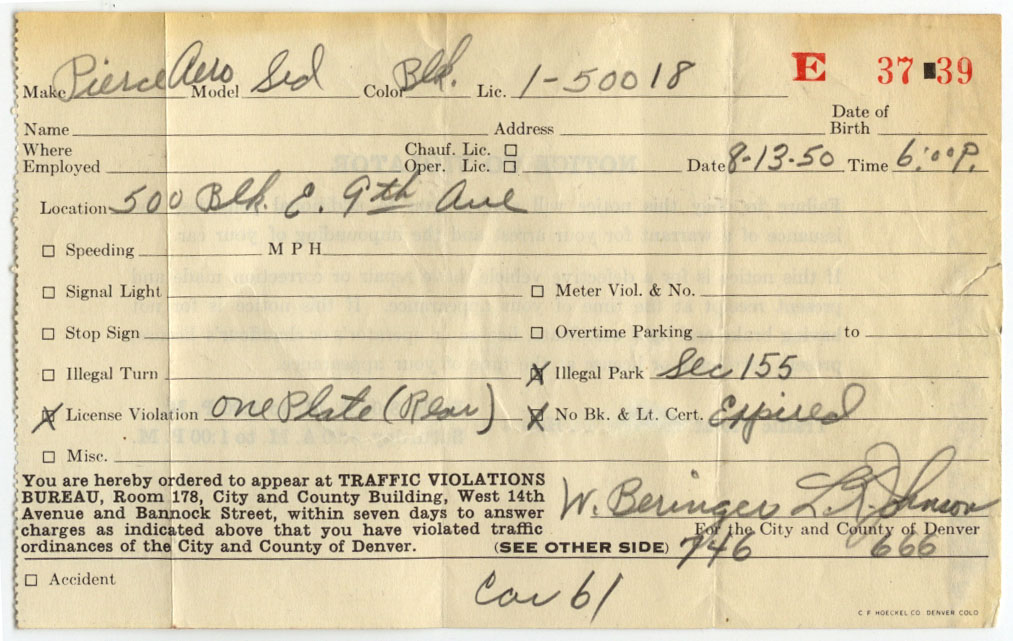 Make Pierce Aero Model Sed Color Blk. Lic. 1-50018 E 37 39
Name Address Date of Birth
Where Employed Chauf. Lic. ☐ Oper. Lic. ☐ Date 8-13-50 Time 6:00 P.
Location 500 Blk. E. 9th Ave
☐ Speeding M P H
☐ Signal Light ☐ Meter Viol. & No.
☐ Stop Sign ☐ Overtime Parking to
☐ Illegal Turn ☒ Illegal Park Sec 155
☒ License Violation One Plate (Rear) ☒ No Bk. & Lt. Cert. Expired
☐ Misc.
You are hereby ordered to appear at TRAFFIC VIOLATIONS
BUREAU, Room 178, City and County Building, West 14th
Avenue and Bannock Street, within seven days to answer
charges as indicated above that you have violated traffic
ordinances of the City and County of Denver. (SEE OTHER SIDE)
W. Beringer L. R. Johnson
For the City and County of Denver
746 666
☐ Accident
Car 61
C. F. HOECKEL CO. DENVER COLO